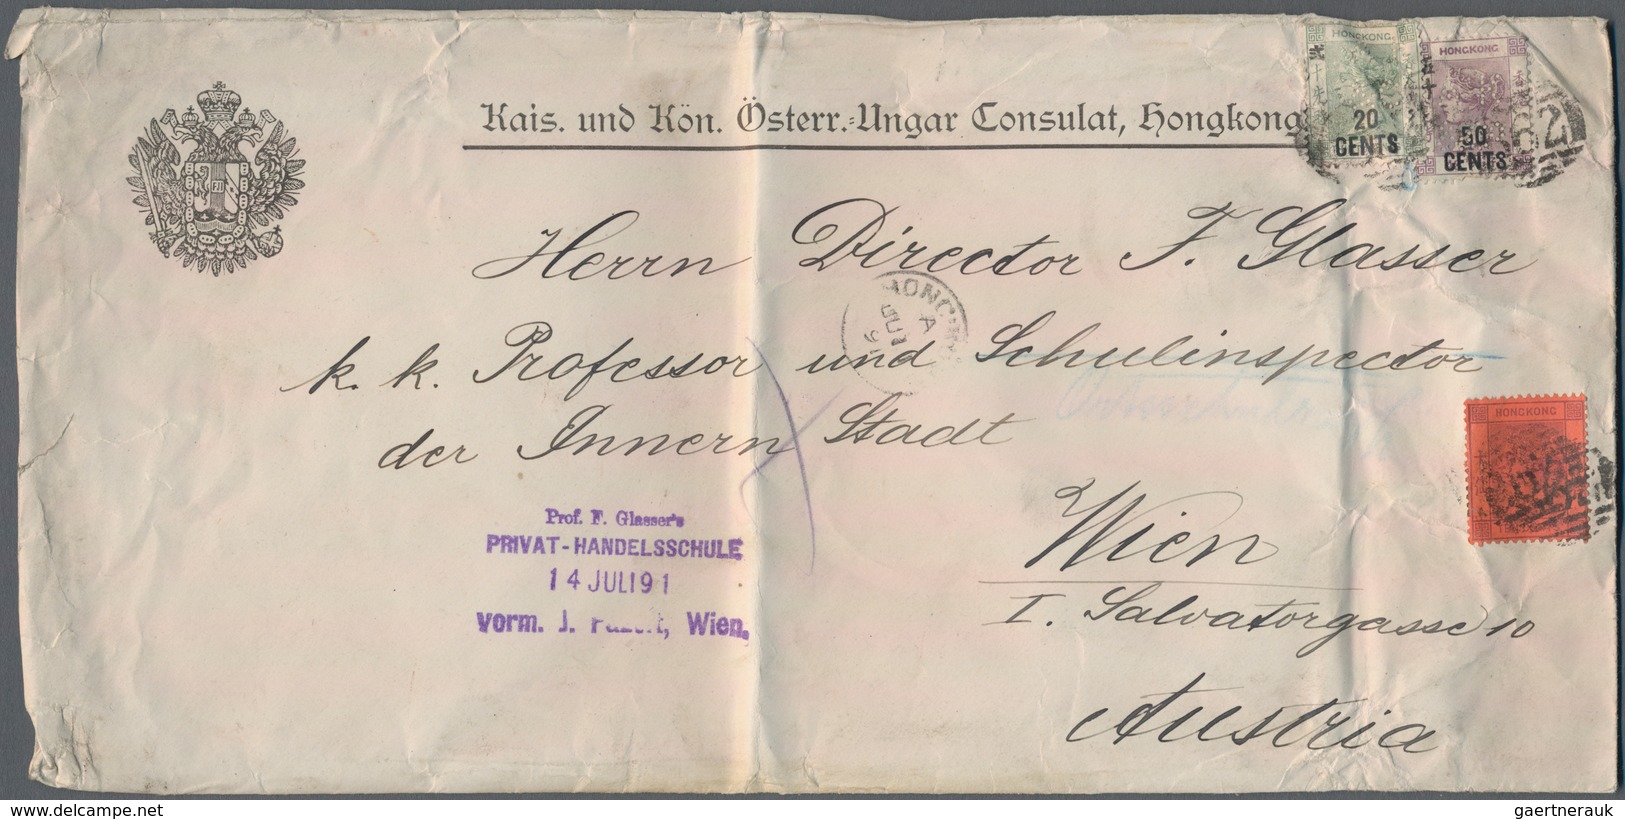 Kais. und Kön. Österr.-Ungar Consulat, Hongkong
HONGKONG
20
CENTS
HONGKONG
五十
50
CENTS
Herrn Director F. Glasser
k. k. Professor und Schulinspector
der Innern Stadt
HONGKONG
Wien
I. Salvatorgasse 10
Austria
Prof. F. Glasser's
PRIVAT-HANDELSSCHULE
14 JULI 91
vorm. J. Wien.
delcampe.net
gaertnerauk